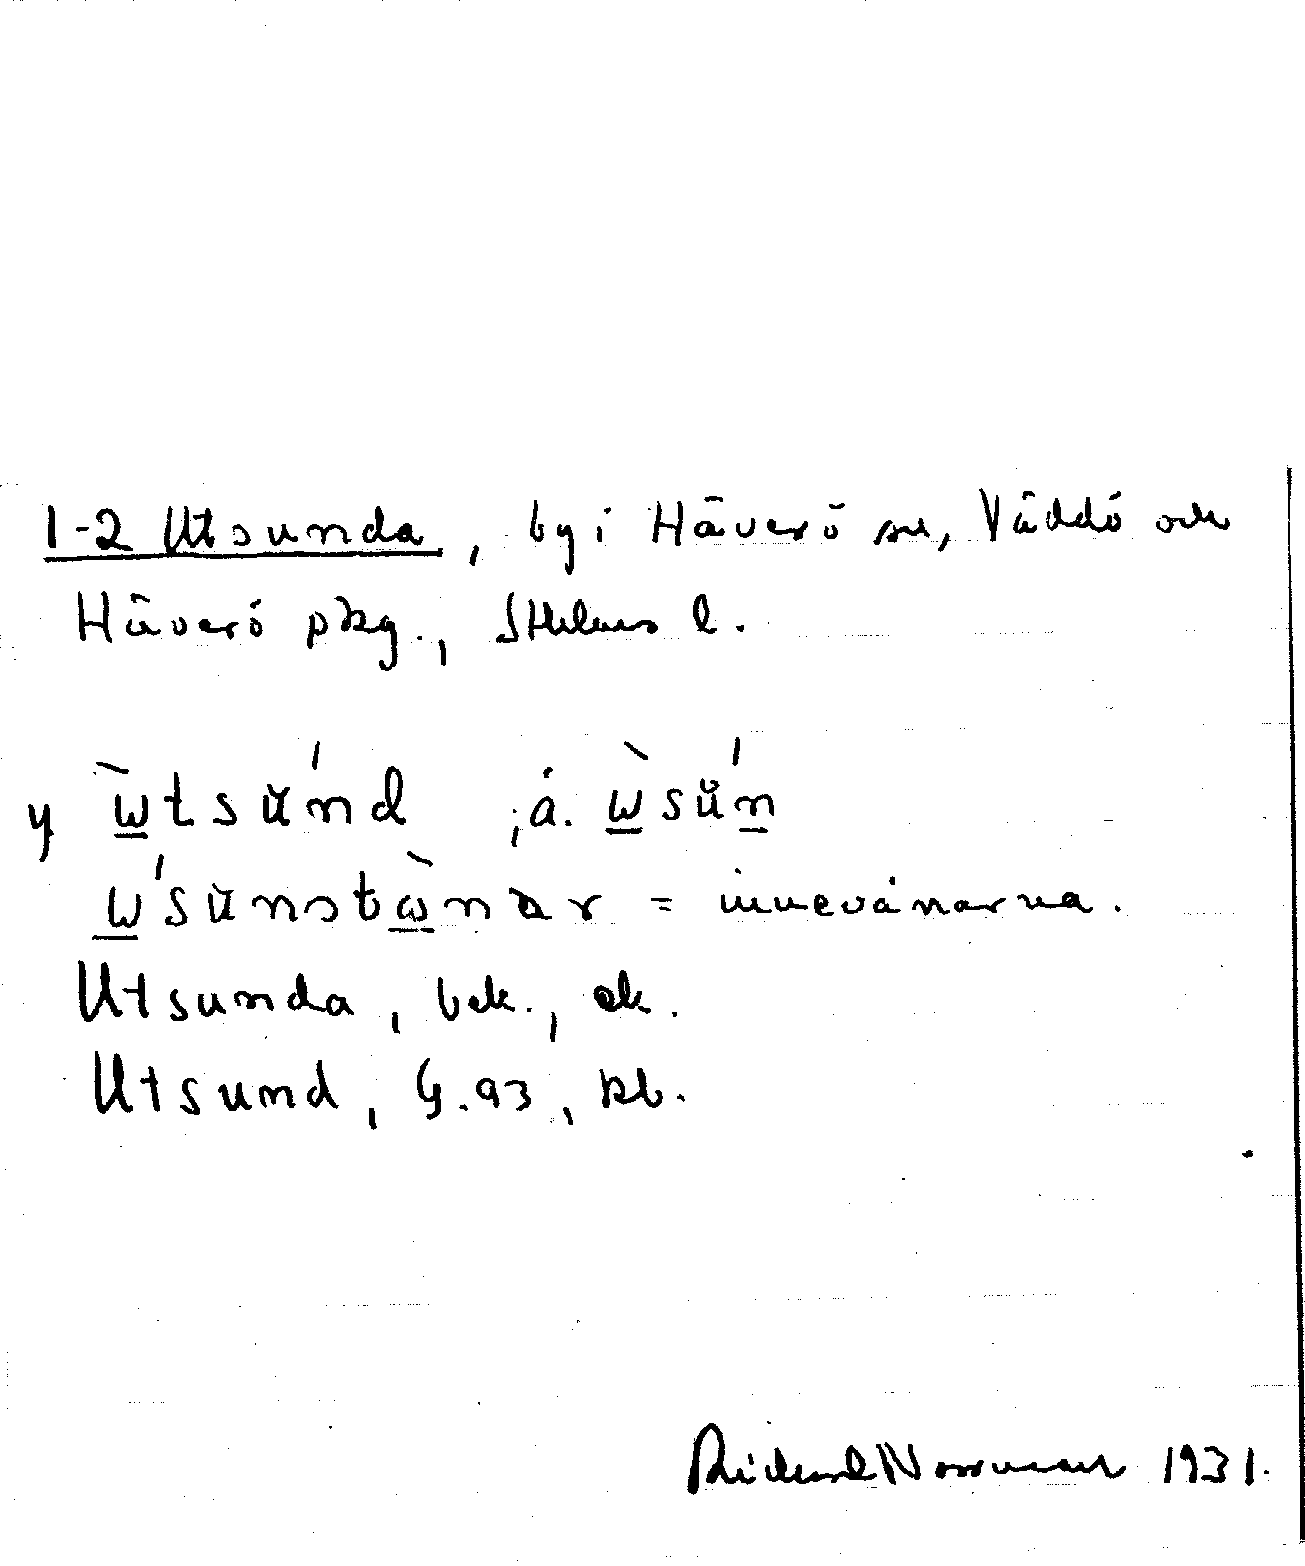 1-2 Utsunda, by i Häverö sn, Väddö och
Häverö pkg., Sthlms l.
y ὼtsŭ́nd ; ä. ὼsŭ́n
ẃsŭnstὼnar = innevånarna.
Utsunda, bek., ek.
Utsund, G.93, kb.
Rickard Norrman 1931.